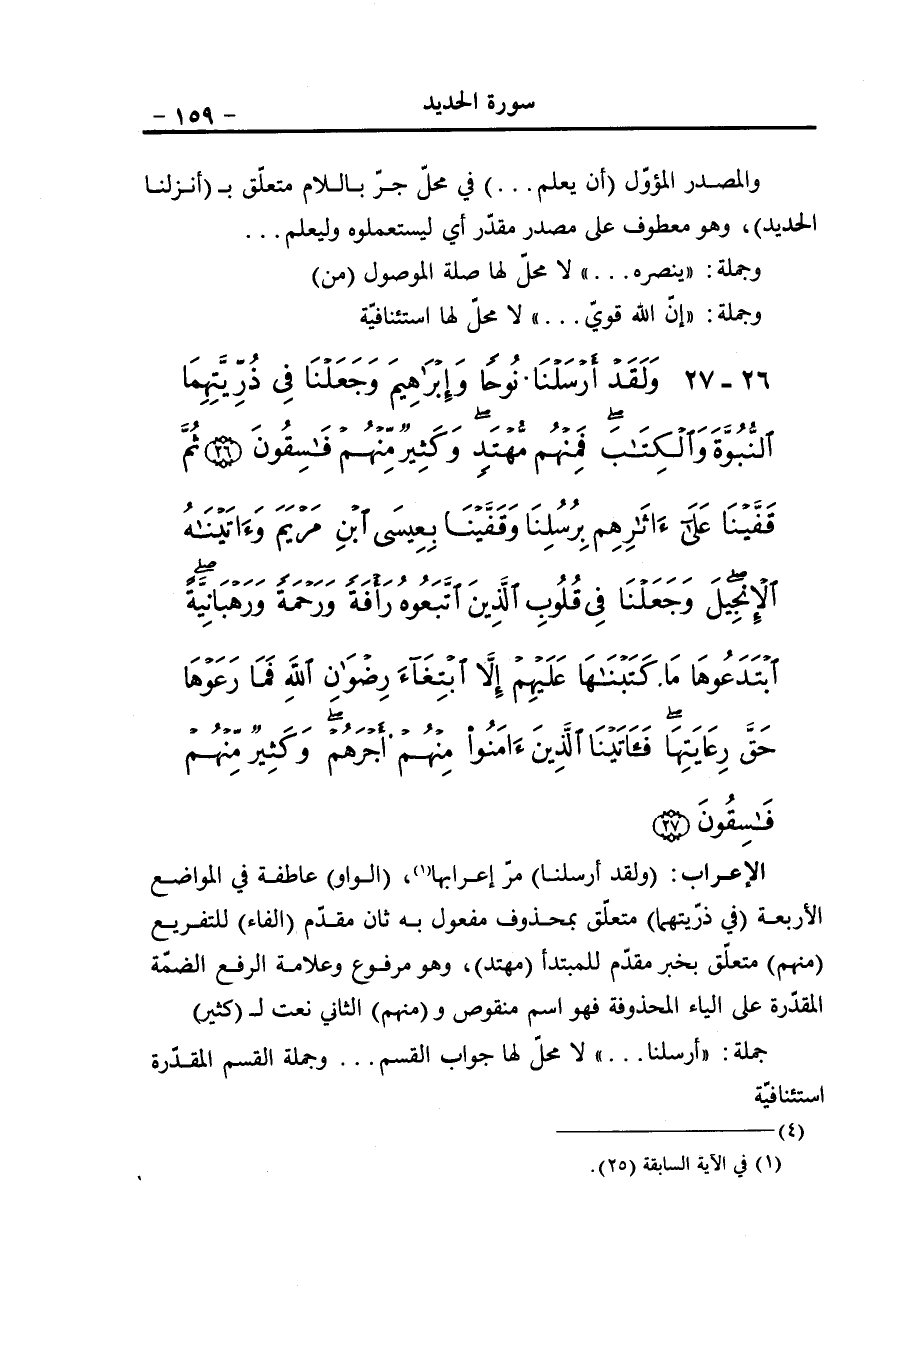 سورة الحديد
- ١٥٩ -
والمصدر المؤوّل (أن يعلم...) في محلّ جرّ باللام متعلّق بـ (أنزلنا
الحديد)، وهو معطوف على مصدر مقدّر أي ليستعملوه وليعلم...
وجملة: «ينصره...» لا محلّ لها صلة الموصول (من)
وجملة: «إنّ الله قويّ...» لا محلّ لها استئنافيّة
٢٦ - ٢٧ وَلَقَدْ أَرْسَلْنَا نُوحًا وَإِبْرَٰهِيمَ وَجَعَلْنَا فِى ذُرِّيَّتِهِمَا
ٱلنُّبُوَّةَ وَٱلْكِتَٰبَ ۖ فَمِنْهُم مُّهْتَدٍ ۖ وَكَثِيرٌ مِّنْهُمْ فَٰسِقُونَ ﴿٢٦﴾ ثُمَّ
قَفَّيْنَا عَلَىٰٓ ءَاثَٰرِهِم بِرُسُلِنَا وَقَفَّيْنَا بِعِيسَى ٱبْنِ مَرْيَمَ وَءَاتَيْنَٰهُ
ٱلْإِنجِيلَ ۖ وَجَعَلْنَا فِى قُلُوبِ ٱلَّذِينَ ٱتَّبَعُوهُ رَأْفَةً وَرَحْمَةً ۖ وَرَهْبَانِيَّةً
ٱبْتَدَعُوهَا مَا كَتَبْنَٰهَا عَلَيْهِمْ إِلَّا ٱبْتِغَآءَ رِضْوَٰنِ ٱللَّهِ فَمَا رَعَوْهَا
حَقَّ رِعَايَتِهَا ۖ فَـَٔاتَيْنَا ٱلَّذِينَ ءَامَنُوا۟ مِنْهُمْ أَجْرَهُمْ ۖ وَكَثِيرٌ مِّنْهُمْ
فَٰسِقُونَ ﴿٢٧﴾
الإعراب: (ولقد أرسلنا) مرّ إعرابها(١)، (الواو) عاطفة في المواضع
الأربعة (في ذرّيتهما) متعلّق بمحذوف مفعول به ثان مقدّم (الفاء) للتفريع
(منهم) متعلّق بخبر مقدّم للمبتدأ (مهتد)، وهو مرفوع وعلامة الرفع الضمّة
المقدّرة على الياء المحذوفة فهو اسم منقوص و (منهم) الثاني نعت لـ (كثير)
جملة: «أرسلنا...» لا محلّ لها جواب القسم... وجملة القسم المقدّرة
استئنافيّة
(٤)
(١) في الآية السابقة (٢٥).